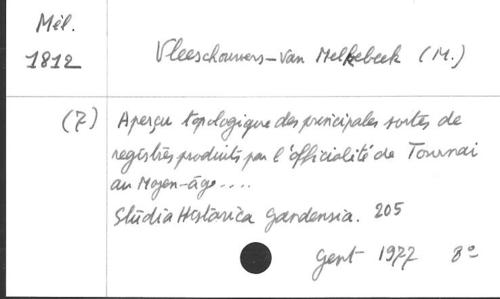 Mél.
1812
Vleeschouwers-Van Melkebeek (M.)
(7) Aperçu typologique des principales sortes de
registres produits par l'officialité de Tournai
au Moyen-âge....
Studia Historica Gandensia. 205
Gent 1977 8°